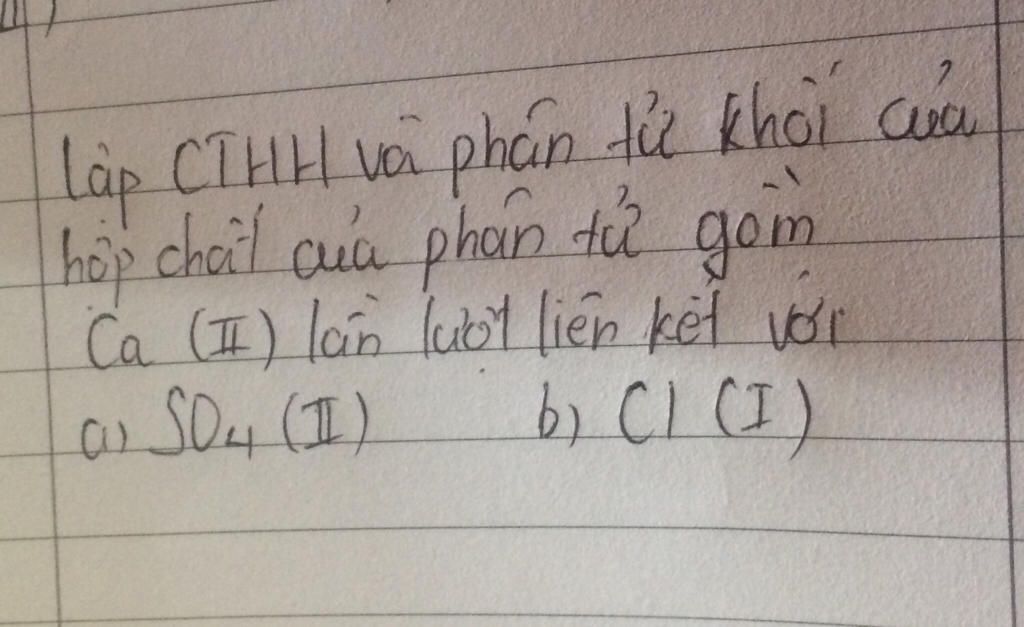 lập CTHH và phân tử khối của
hợp chất của phân tử gồm
Ca (II) lần lượt liên kết với
a) SO4 (II) b) Cl (I)